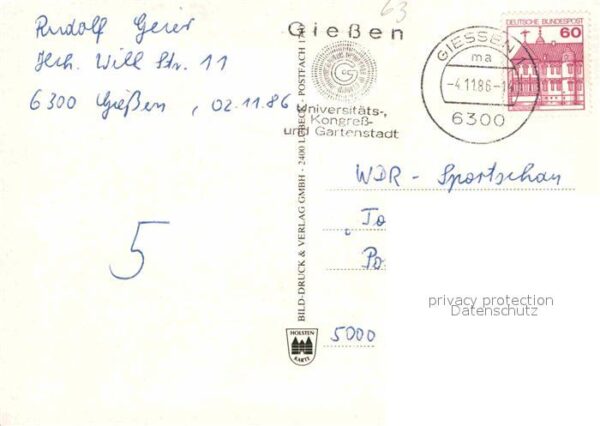 Rudolf Geier
Hch. Will Str. 11
6300 Gießen, 02.11.86
5
63
Gießen
Universitäts-,
Kongreß-
und Gartenstadt
GIESSEN 1
ma
-4.11.86-
6300
DEUTSCHE BUNDESPOST
60
BILD-DRUCK & VERLAG GMBH - 2400 LÜBECK, POSTFACH
HOLSTEN
KARTE
WDR - Sportschau
"To
Po
5000
privacy protection
Datenschutz